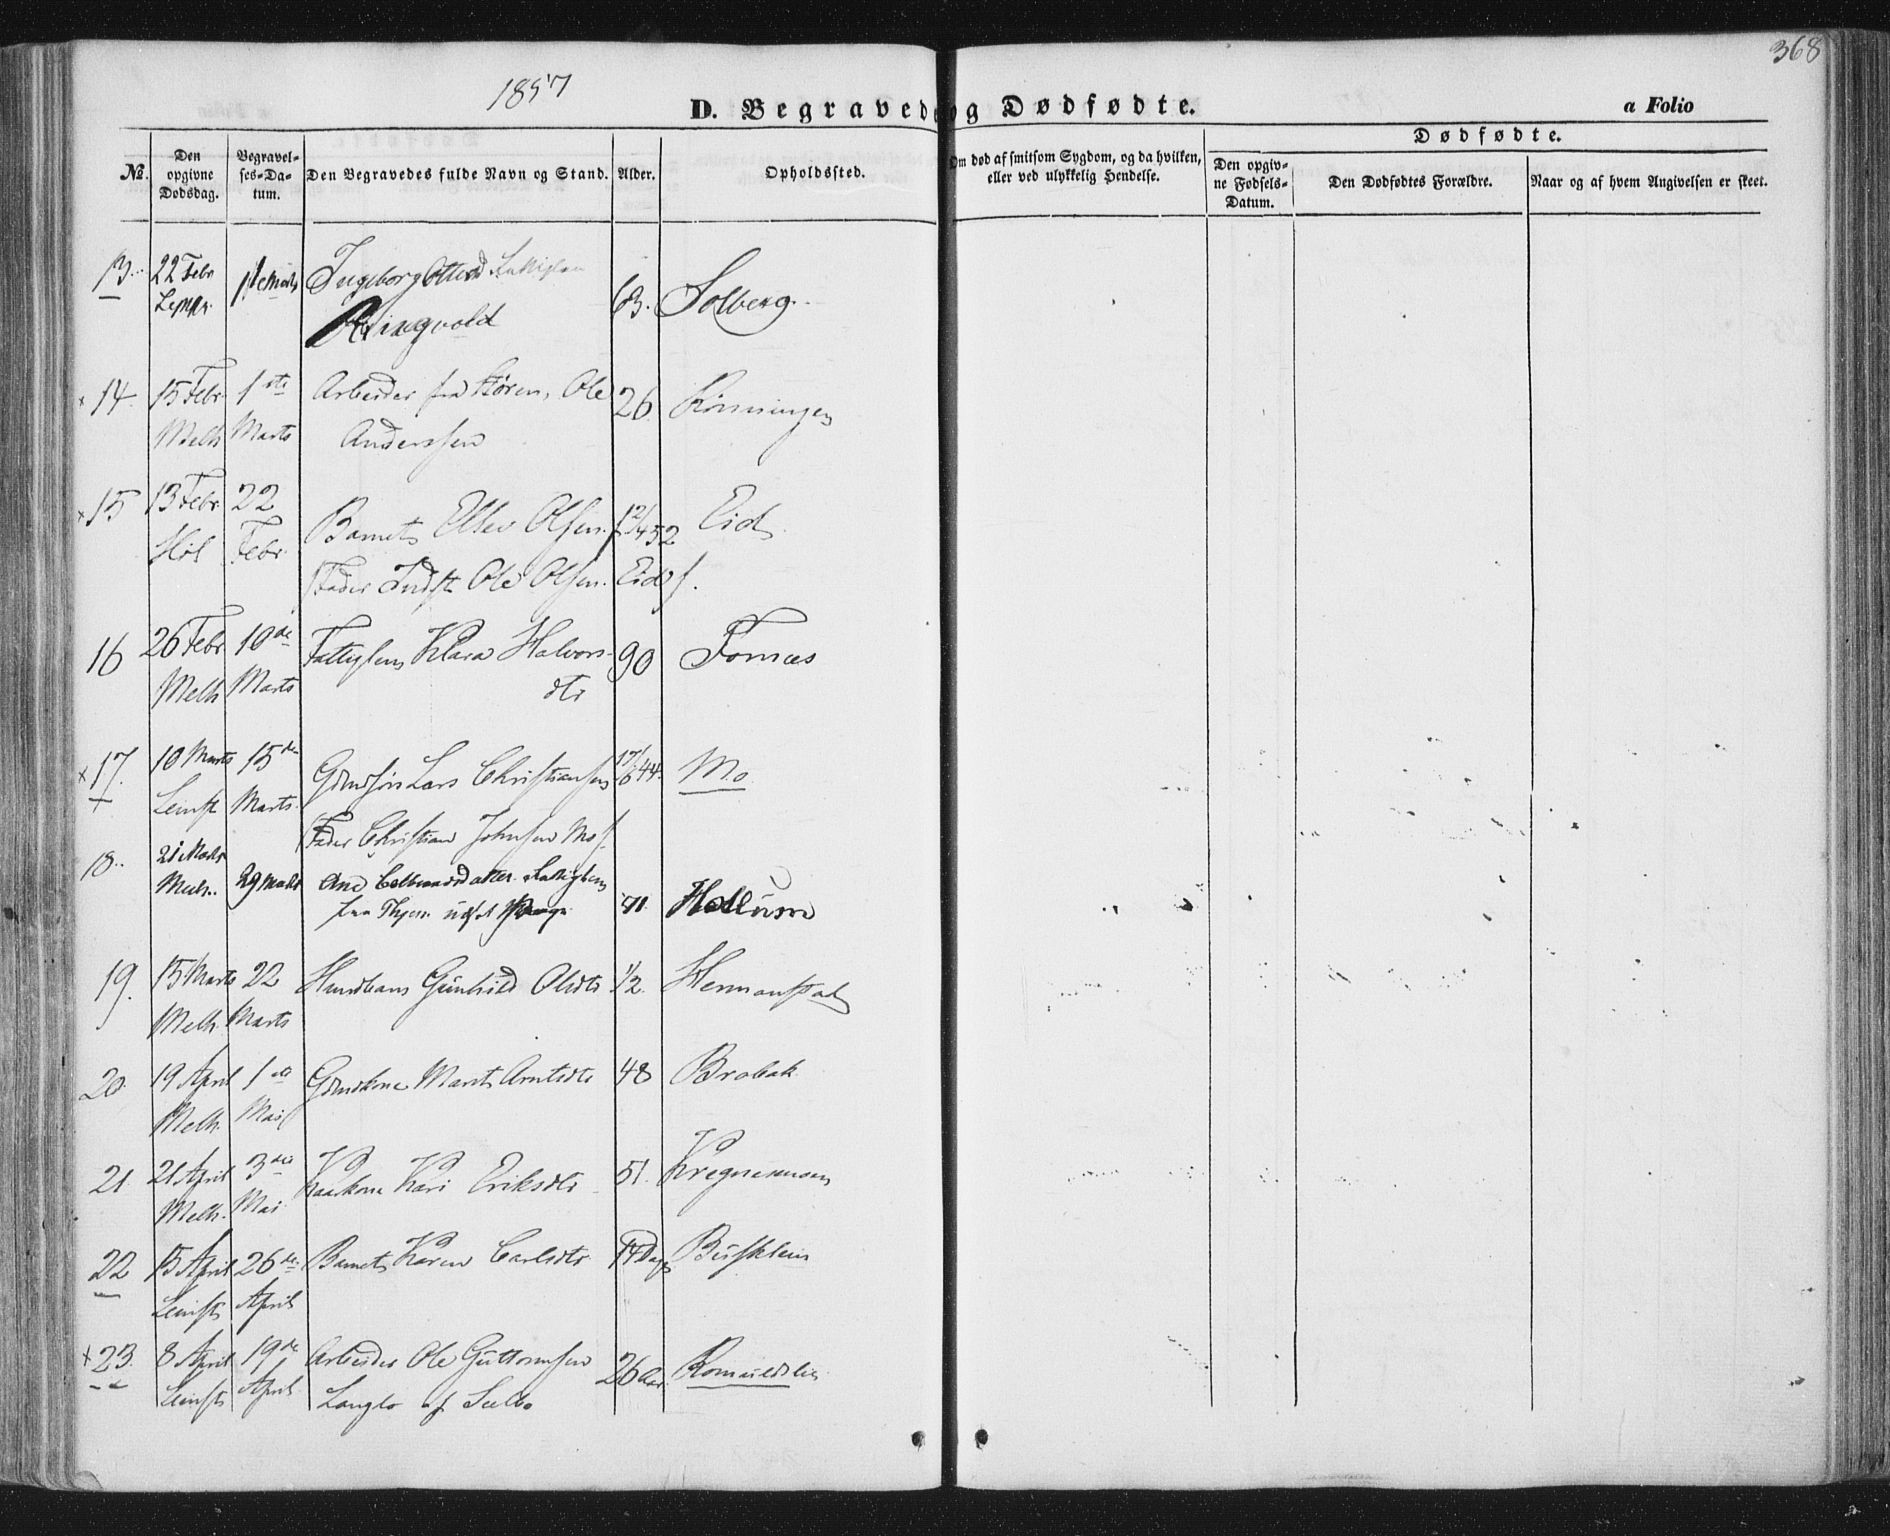 368
1857
D. Begravede og Dødfødte.
a Folio
Dødfødte.
No.
Den opgivne Dødsdag.
Begravel-ses-Da-tum.
Den Begravedes fulde Navn og Stand.
Alder.
Opholdssted.
Om død af smitsom Sygdom, og da hvilken, eller ved ulykkelig Hendelse.
Den opgiv-ne Fødsels-Datum.
Den Dødfødtes Forældre.
Naar og af hvem Angivelsen er skeet.
13. 22 Febr 1 Marts Ingeborg Ottersd
Ringvold 63. Solberg.
× 14. 15 Febr 1ste Arbeider fra Støren, Ole 26 Rønningen
Melh Marts Anderssen
× 15 13 Febr 22 Barnet Ellev Olsen 12/4 52 Eid
Høl Febr.
(Fader Indst Ole Olsen Eid).
16 26 Febr 10de Fattiglem Klara Halvors- 90 Fornæs
Melh Marts dtr
× 17. 10 Marts 15de Gmdsøn Lars Christiansen 17/6 44. Mo
Leinst Marts (Fader Christian Johnsen Mo)
18. 21 Marts
Melh. 29 Marts Ane datter Fattiglem
fra 71. Hollum
19. 15 Marts 22 Husbarn Gunhild Olsdtr 1/2 Hermanstad
Melh. Marts
20. 19 April 1ste Gmdkone Marit Arntsdtr 48 Brobak
Melh. Mai
21. 21 April 3die Kaarkone Kari Eriksdtr 51. Kregnesmoen
Melh. Mai
22 15 April 26de Barnet Karen Carlsdtr 14 Dage Busklein
Leinst April
× 23. 8 April 19de Arbeider Ole Guttormsen 26 Aar. Romuldslie
Leinst April Langlo af Selbo